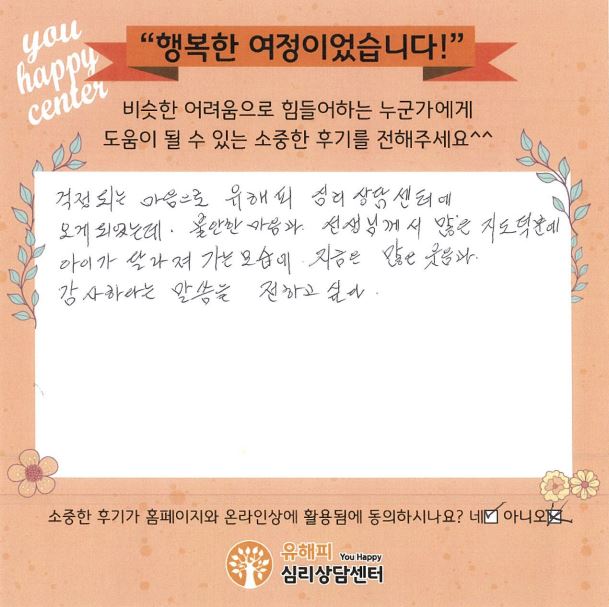 you
happy
center
“행복한 여정이었습니다!”
비슷한 어려움으로 힘들어하는 누군가에게
도움이 될 수 있는 소중한 후기를 전해주세요^^
걱정되는 마음으로 유해피 심리상담센터에
오게되었는데. 불안한 마음과 선생님께서 많은 지도덕분에
아이가 달라져 가는모습에 지금은 많은 웃음과
감사하다는 말씀을 전하고 싶다.
소중한 후기가 홈페이지와 온라인상에 활용됨에 동의하시나요? 네 아니오
유해피 You Happy
심리상담센터